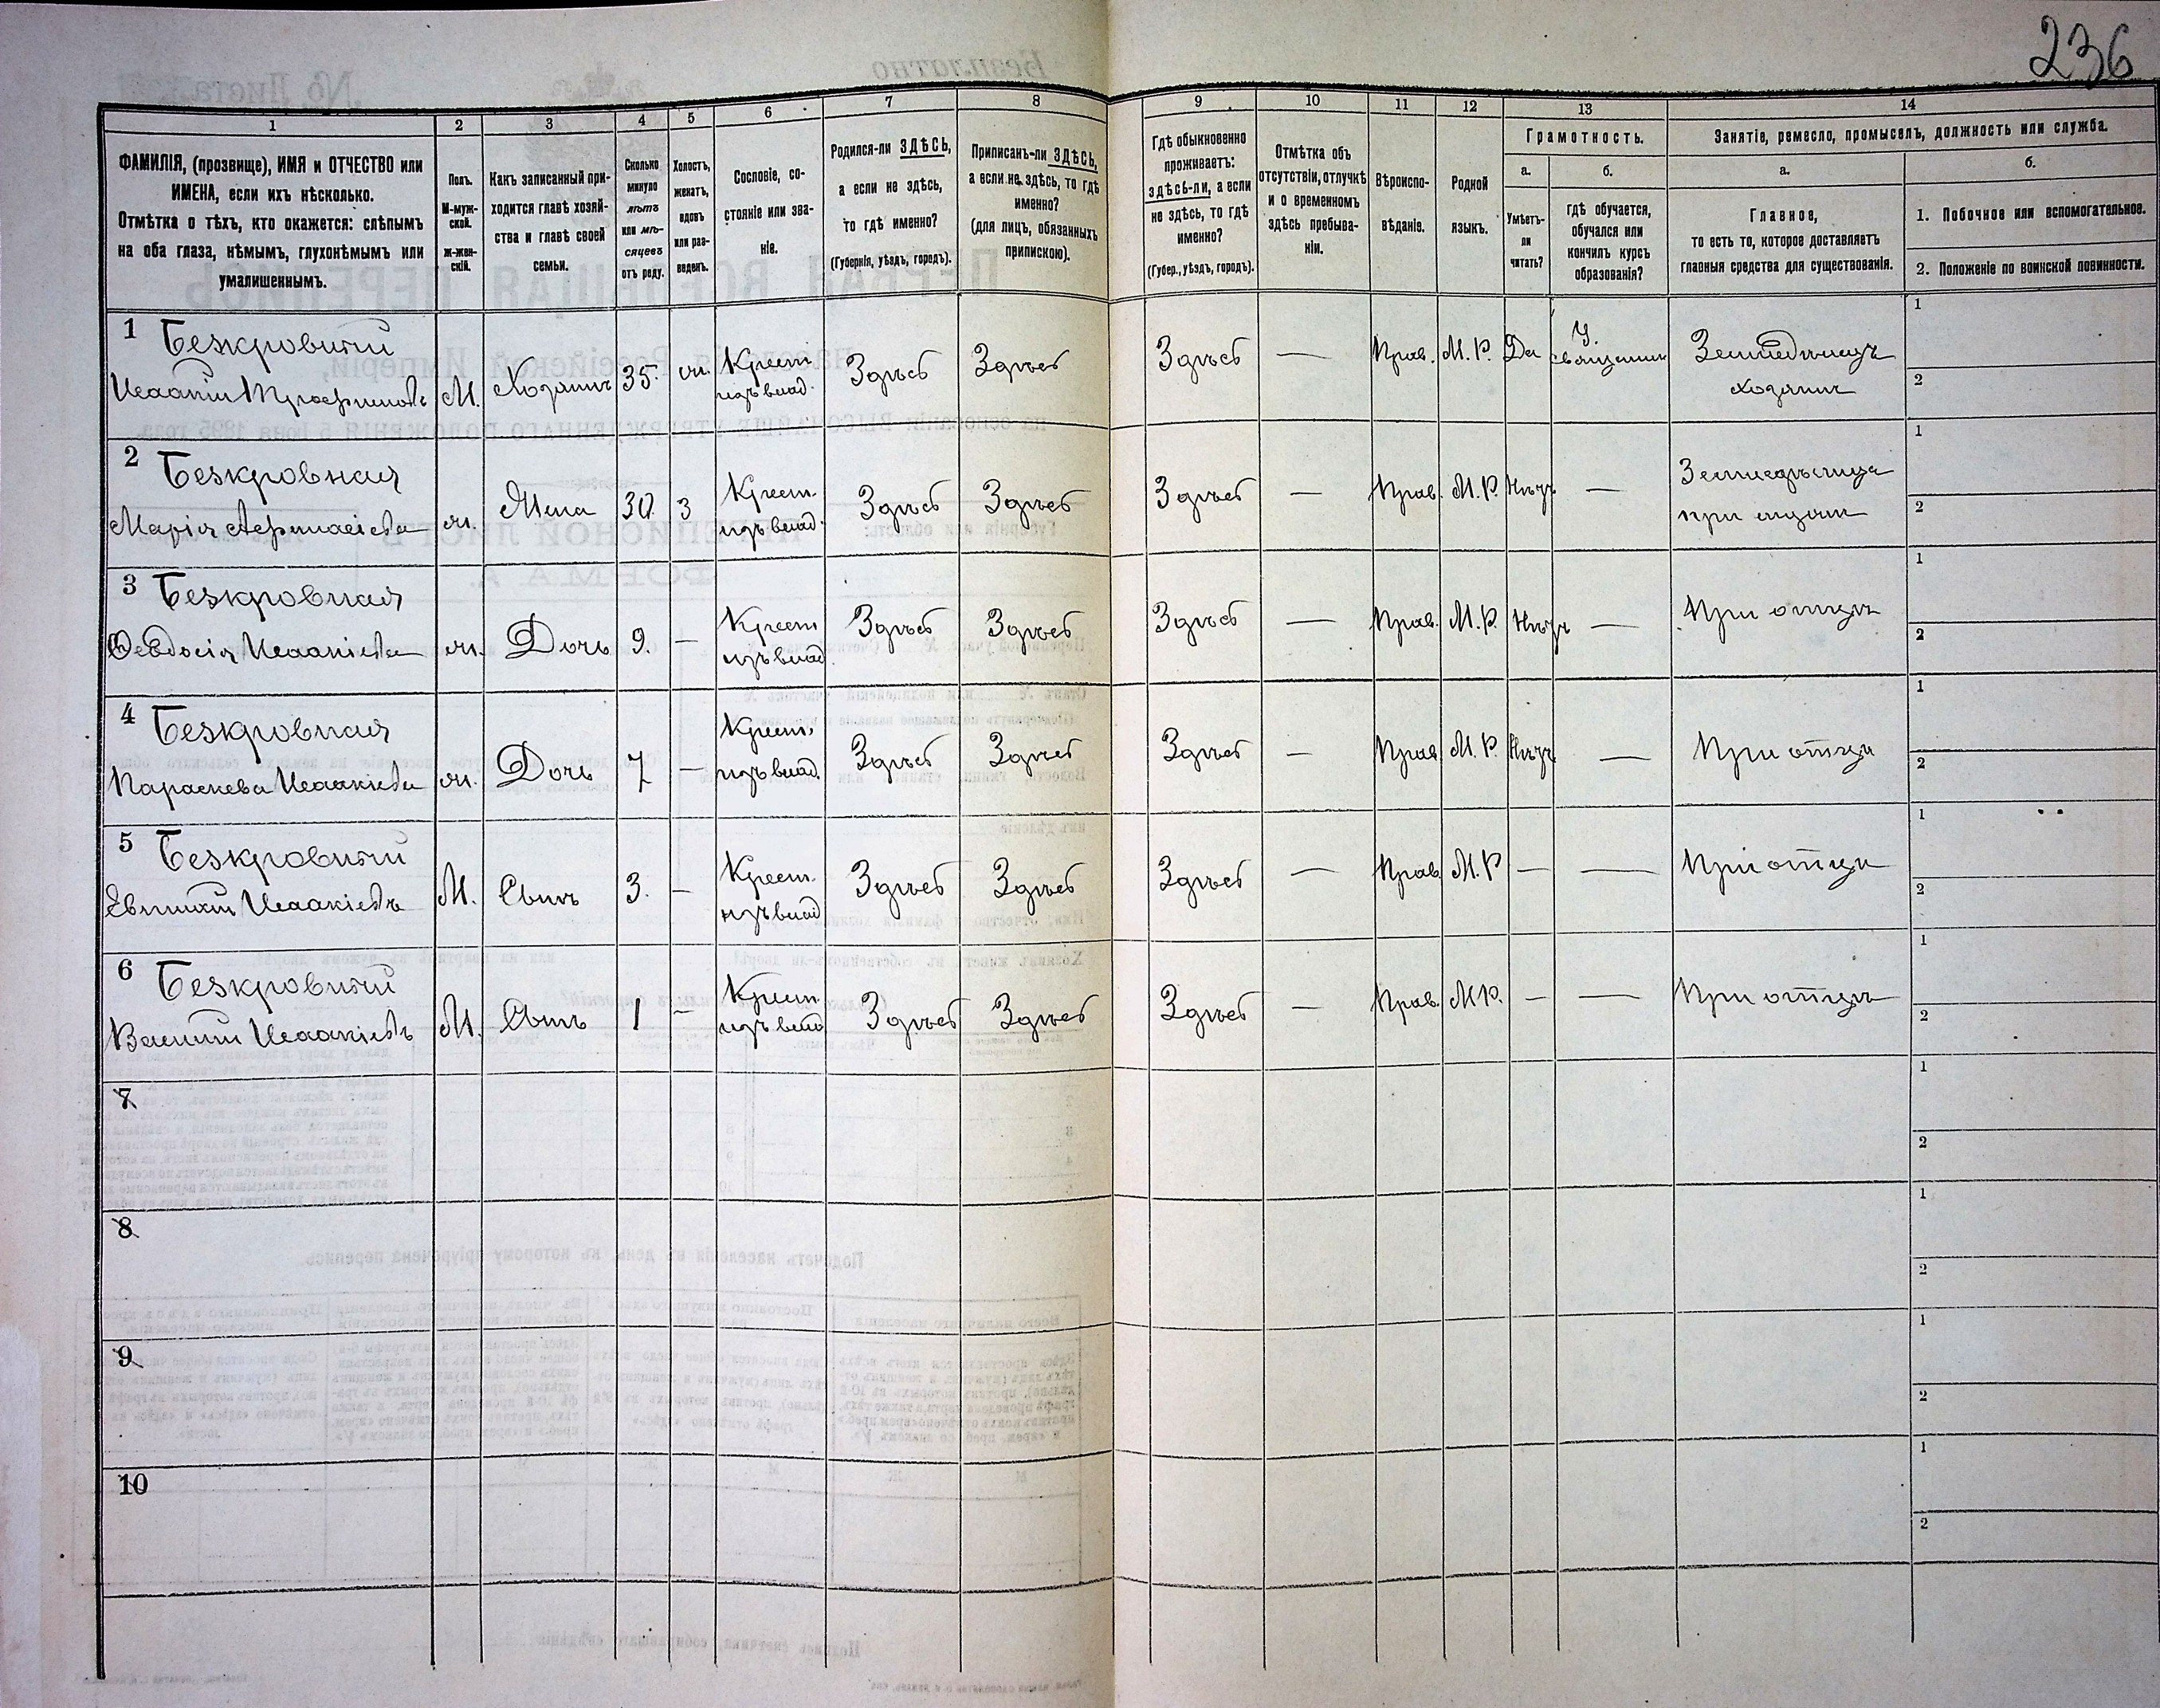 236
1 2 3 4 5 6 7 8 9 10 11 12 13 14
ФАМИЛІЯ, (прозвище), ИМЯ и ОТЧЕСТВО или
ИМЕНА, если ихъ нѣсколько.
Отмѣтка о тѣхъ, кто окажется: слѣпымъ
на оба глаза, нѣмымъ, глухонѣмымъ или
умалишеннымъ.
Полъ.
М-муж-
ской.
ж-жен-
скій.
Какъ записанный при-
ходится главѣ хозяй-
ства и главѣ своей
семьи.
Сколько
минуло
лѣтъ
или мѣ-
сяцевъ
отъ роду.
Холостъ,
женатъ,
вдовъ
или раз-
веденъ.
Сословіе, со-
стояніе или зва-
ніе.
Родился-ли ЗДѢСЬ,
а если не здѣсь,
то гдѣ именно?
(Губернія, уѣздъ, городъ).
Приписанъ-ли ЗДѢСЬ,
а если не здѣсь, то гдѣ
именно?
(для лицъ, обязанныхъ
припискою).
Гдѣ обыкновенно
проживаетъ:
здѣсь-ли, а если
не здѣсь, то гдѣ
именно?
(Губер., уѣздъ, городъ).
Отмѣтка объ
отсутствіи, отлучкѣ
и о временномъ
здѣсь пребыва-
ніи.
Вѣроиспо-
вѣданіе.
Родной
языкъ.
Грамотность.
а.
Умѣетъ-
ли
читать?
б.
гдѣ обучается,
обучался или
кончилъ курсъ
образованія?
Занятіе, ремесло, промыселъ, должность или служба.
а.
Главное,
то есть то, которое доставляетъ
главныя средства для существованія.
б.
1. Побочное или вспомогательное.
2. Положеніе по воинской повинности.
1 Безкровный
Исаакій М. Хозяинъ 35. ж. Крест. изъ влад. Здѣсь Здѣсь Здѣсь — Прав. М. Р. Да У священника Земледѣлецъ хозяинъ 1 2
2 Безкровная
Марія ж. Жена 30 З Крест. изъ влад. Здѣсь Здѣсь Здѣсь — Прав. М. Р. Нѣтъ — Земледѣлица при мужѣ 1 2
3 Безкровная
Ѳеодосія Исаакіева ж. Дочь 9. — Крест изъ влад. Здѣсь Здѣсь Здѣсь — Прав. М. Р. Нѣтъ — При отцѣ 1 2
4 Безкровная
Параскева Исаакіева ж. Дочь 7 — Крест. изъ влад. Здѣсь Здѣсь Здѣсь — Прав М. Р. Нѣтъ — При отцѣ 1 2
5 Безкровный
Исаакіевъ М. Сынъ 3. — Крест. изъ влад Здѣсь Здѣсь Здѣсь — Прав. М. Р — — При отцѣ 1 2
6 Безкровный
Василій Исаакіевъ М. Сынъ 1 — Крест изъ влад Здѣсь Здѣсь Здѣсь — Прав. М Р. — — При отцѣ 1 2
7 1 2
8 1 2
9 1 2
10 1 2